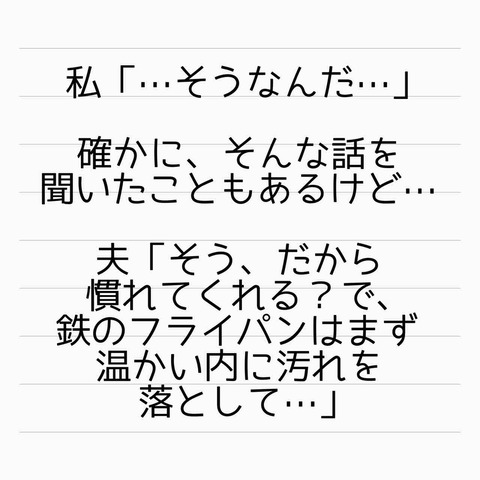 私「…そうなんだ…」
確かに、そんな話を
聞いたこともあるけど…
夫「そう、だから
慣れてくれる？で、
鉄のフライパンはまず
温かい内に汚れを
落として…」